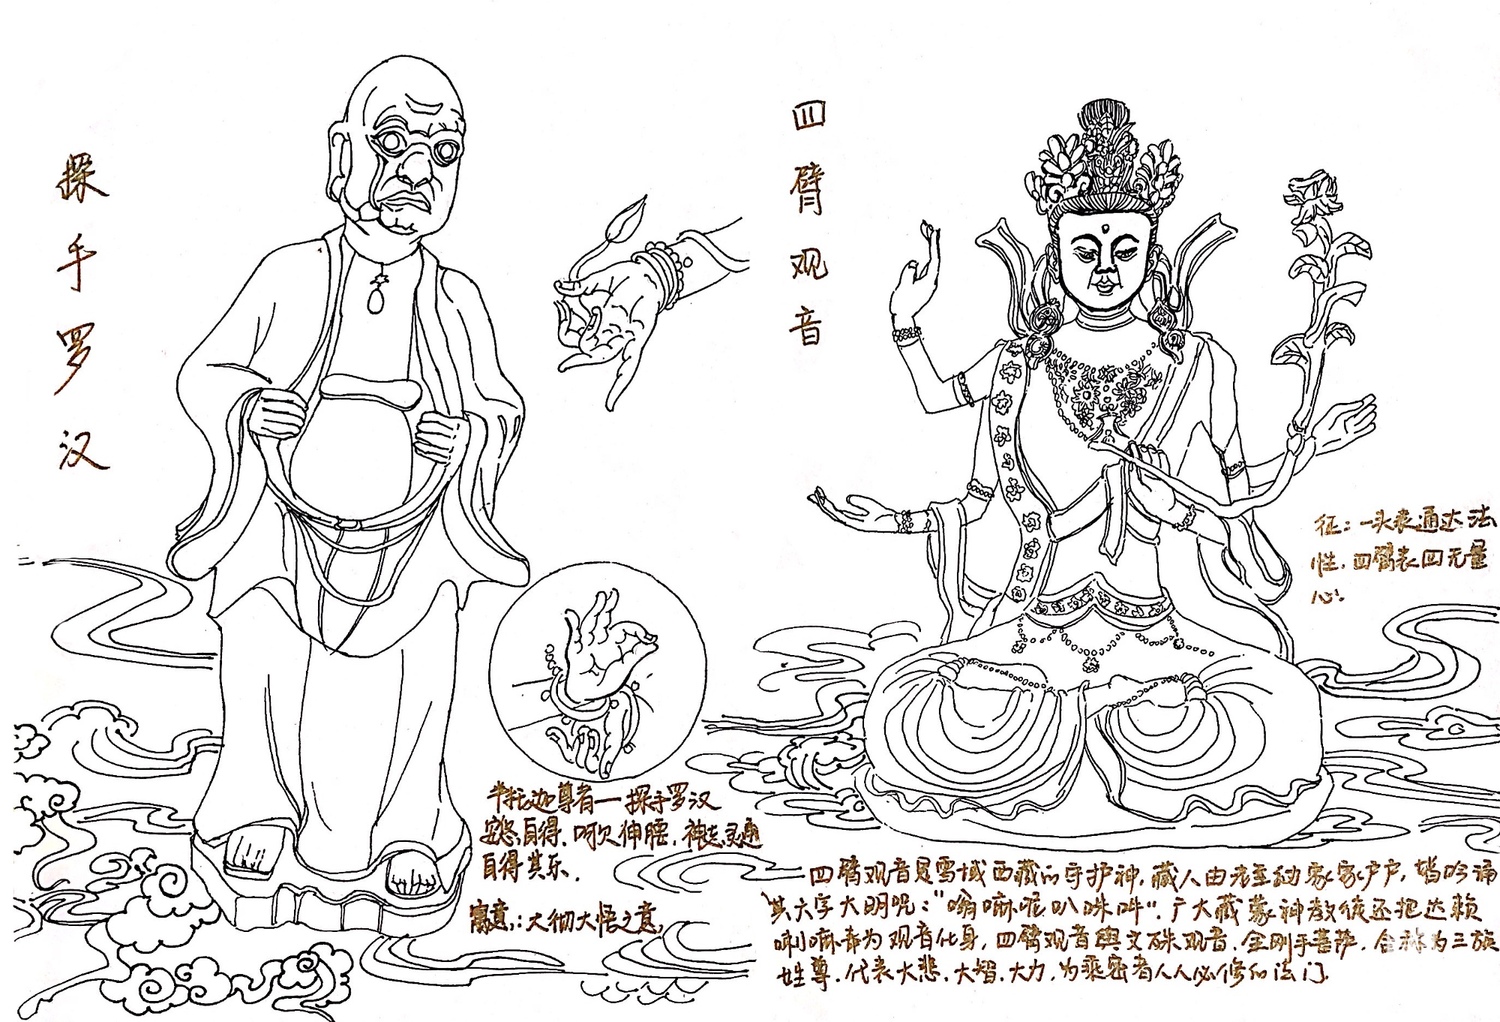 探手罗汉
四臂观音
征：一头表通达法
性．四臂表四无量
心．
半托迦尊者一探手罗汉
安悠自得．呵欠伸腰．神志灵通
自得其乐．
寓意：大彻大悟之意，
四臂观音是雪域西藏的守护神，藏人由老至幼家家户户，皆吟诵
其六字大明咒："嗡嘛呢叭咪吽"．广大藏蒙神教徒还把达赖
喇嘛奉为观音化身，四臂观音與文殊观音．金刚手菩萨．合称为三族
姓尊．代表大悲．大智．大力．为乘密者人人必修的法门．